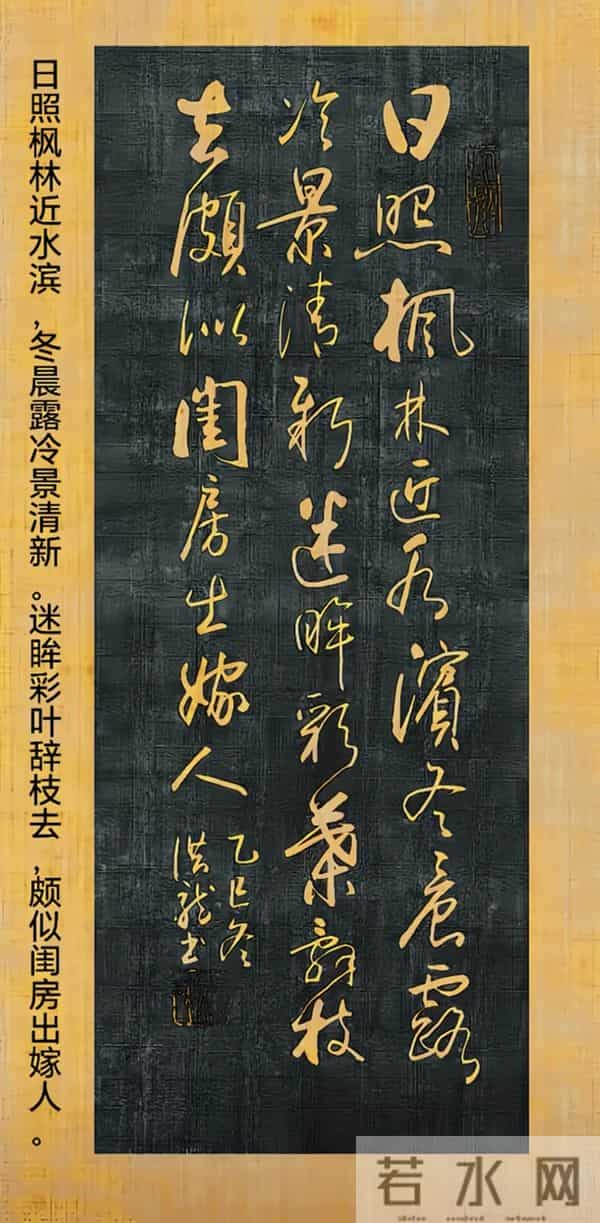 日照枫林近水滨，冬晨露冷景清新。迷眸彩叶辞枝去，颇似闺房出嫁人。
日照枫林近水濱冬晨露
冷景清新迷眸彩葉辞枝
去颇似闺房出嫁人
乙巳冬
洪龙书
若水网